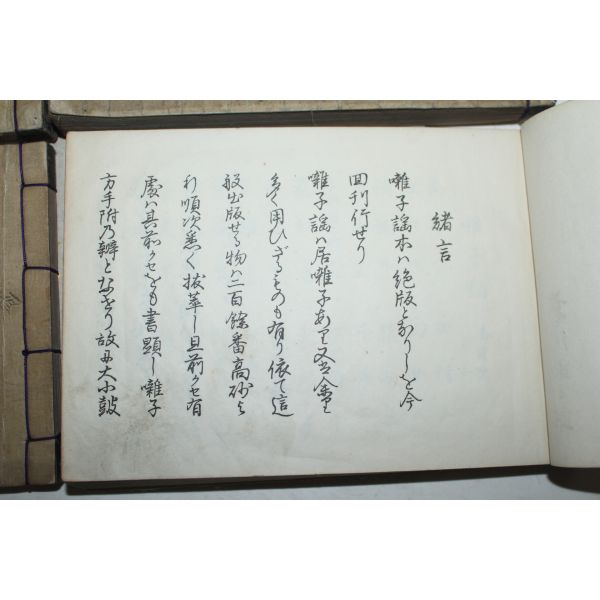 緒言
囃子謡本ハ絶版となりしを今
回刊行せり
囃子謡ハ居囃子あり又
多く用ひざるものも有り依て這
般出版せる物ハ二百餘番高砂よ
り順次悉く抜萃し且前クセ有
處ハ其前クセをも書顕し囃子
方手附乃辨となせり故に大小鼓